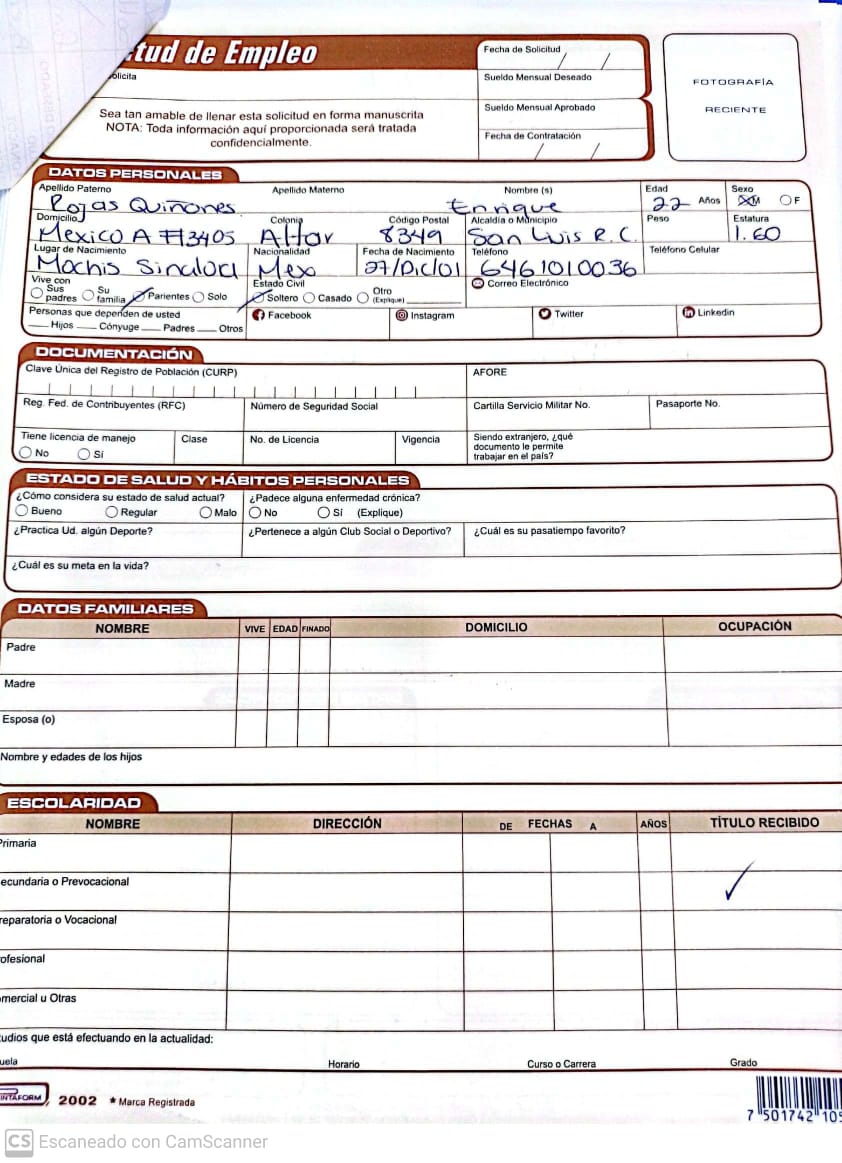 tud de Empleo
olicita
Sea tan amable de llenar esta solicitud en forma manuscrita
NOTA: Toda información aquí proporcionada será tratada
confidencialmente.
Fecha de Solicitud / /
Sueldo Mensual Deseado
Sueldo Mensual Aprobado
Fecha de Contratación / /
FOTOGRAFÍA
RECIENTE
DATOS PERSONALES
Apellido Paterno Apellido Materno Nombre (s) Edad Sexo
Rojas Quiñones Enrique 22 Años M F
Domicilio Colonia Código Postal Alcaldía o Municipio Peso Estatura
Mexico A #13405 Altar 8349 San Luis R.C. 1.60
Lugar de Nacimiento Nacionalidad Fecha de Nacimiento Teléfono Teléfono Celular
Mochis Sinaloa Mex 27/Dic/01 6461010036
Vive con Estado Civil Correo Electrónico
Sus padres Su familia Parientes Solo Soltero Casado Otro (Explique)
Personas que dependen de usted Facebook Instagram Twitter Linkedin
Hijos Cónyuge Padres Otros
DOCUMENTACIÓN
Clave Única del Registro de Población (CURP) AFORE
Reg. Fed. de Contribuyentes (RFC) Número de Seguridad Social Cartilla Servicio Militar No. Pasaporte No.
Tiene licencia de manejo Clase No. de Licencia Vigencia Siendo extranjero, ¿qué
No Sí documento le permite
trabajar en el país?
ESTADO DE SALUD Y HÁBITOS PERSONALES
¿Cómo considera su estado de salud actual? ¿Padece alguna enfermedad crónica?
Bueno Regular Malo No Sí (Explique)
¿Practica Ud. algún Deporte? ¿Pertenece a algún Club Social o Deportivo? ¿Cuál es su pasatiempo favorito?
¿Cuál es su meta en la vida?
DATOS FAMILIARES
NOMBRE VIVE EDAD FINADO DOMICILIO OCUPACIÓN
Padre
Madre
Esposa (o)
Nombre y edades de los hijos
ESCOLARIDAD
NOMBRE DIRECCIÓN DE FECHAS A AÑOS TÍTULO RECIBIDO
Primaria
ecundaria o Prevocacional ✓
reparatoria o Vocacional
ofesional
omercial u Otras
tudios que está efectuando en la actualidad:
uela Horario Curso o Carrera Grado
INTAFORM 2002 * Marca Registrada
7 501742 105
CS Escaneado con CamScanner